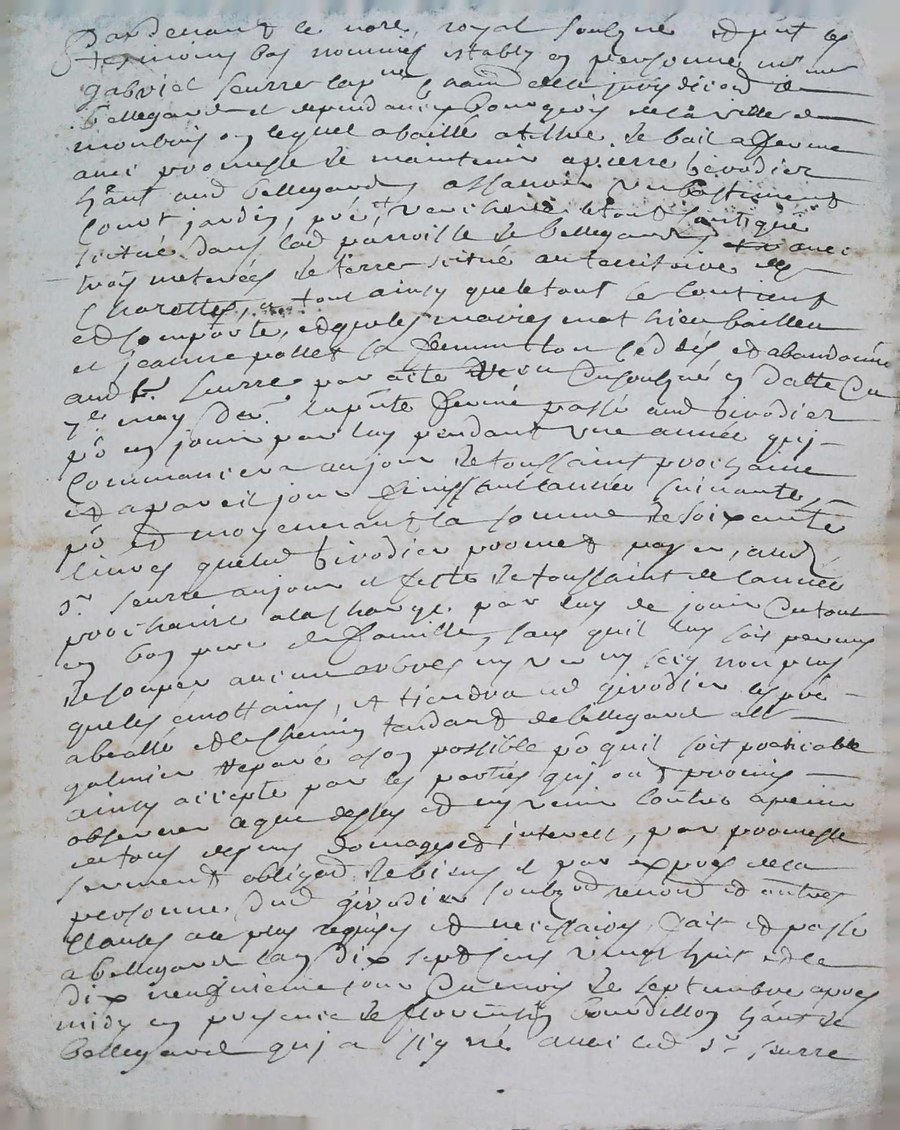 Pardevant le nore, royal soubzné et pnt les
tesmoins bas nommés estably en personne mre
gabriel seurre cap chain de la jurisdicon de
bellegarde et dependances bourgeois de la ville de
monbrison lequel a baillé a tiltre de bail a ferme
avec promesse de maintenir a pierre girodier
hânt aud bellegarde, assavoir un bastiment
court jardin, pré, et vercherie le tout contigue
scitué dans lad parroisse de bellegarde, avec
trois meterées de terre scitué au territoire des
Charottes, et tout ainsy que le tout se contient
et se comporte, et que les maries mathieu bailleu
et jeanne pollet sa femme l'on cédés, et abandonné
aud sr seurre par acte reçu du soubzné en datte du
7e may der la pnte ferme passé aud girodier
po en jouir par luy pendant une année qui
commancera au jour de toussaint prochaine
et a pareil jour finissant l'année suivante,
po et moyennant la somme de soixante
livres que led girodier promet payer, aud
sr seurre au jour et feste de toussaint de l'année
prochaine a la charge par luy de jouir du tout
en bon pere de famille, sans quil luy soit permis
de couper aucun arbres ny vif ny secq non plus
que les émottains, et tiendra led girodier les pré
abeallé et le chemin tendant de bellegarde a st
galmier reparé a son possible po quil soit praticable
ainsy accepté par les parties qui ont promis
observer ce que dessus et ny venir contre a peine
de tous despens domages et interest, par promesse
serment obligaon de biens et par exprés de la
personne dud girodier soubzon renonon et autres
clauses au plus requises et necessaires, fait et passé
a bellegarde l'an dix sept cens vingt huit et le
dix neufvieme jour du mois de septembre apres
midy en presence de florimond bourdillon hânt de
bellegarde qui a signé avec led sr seurre